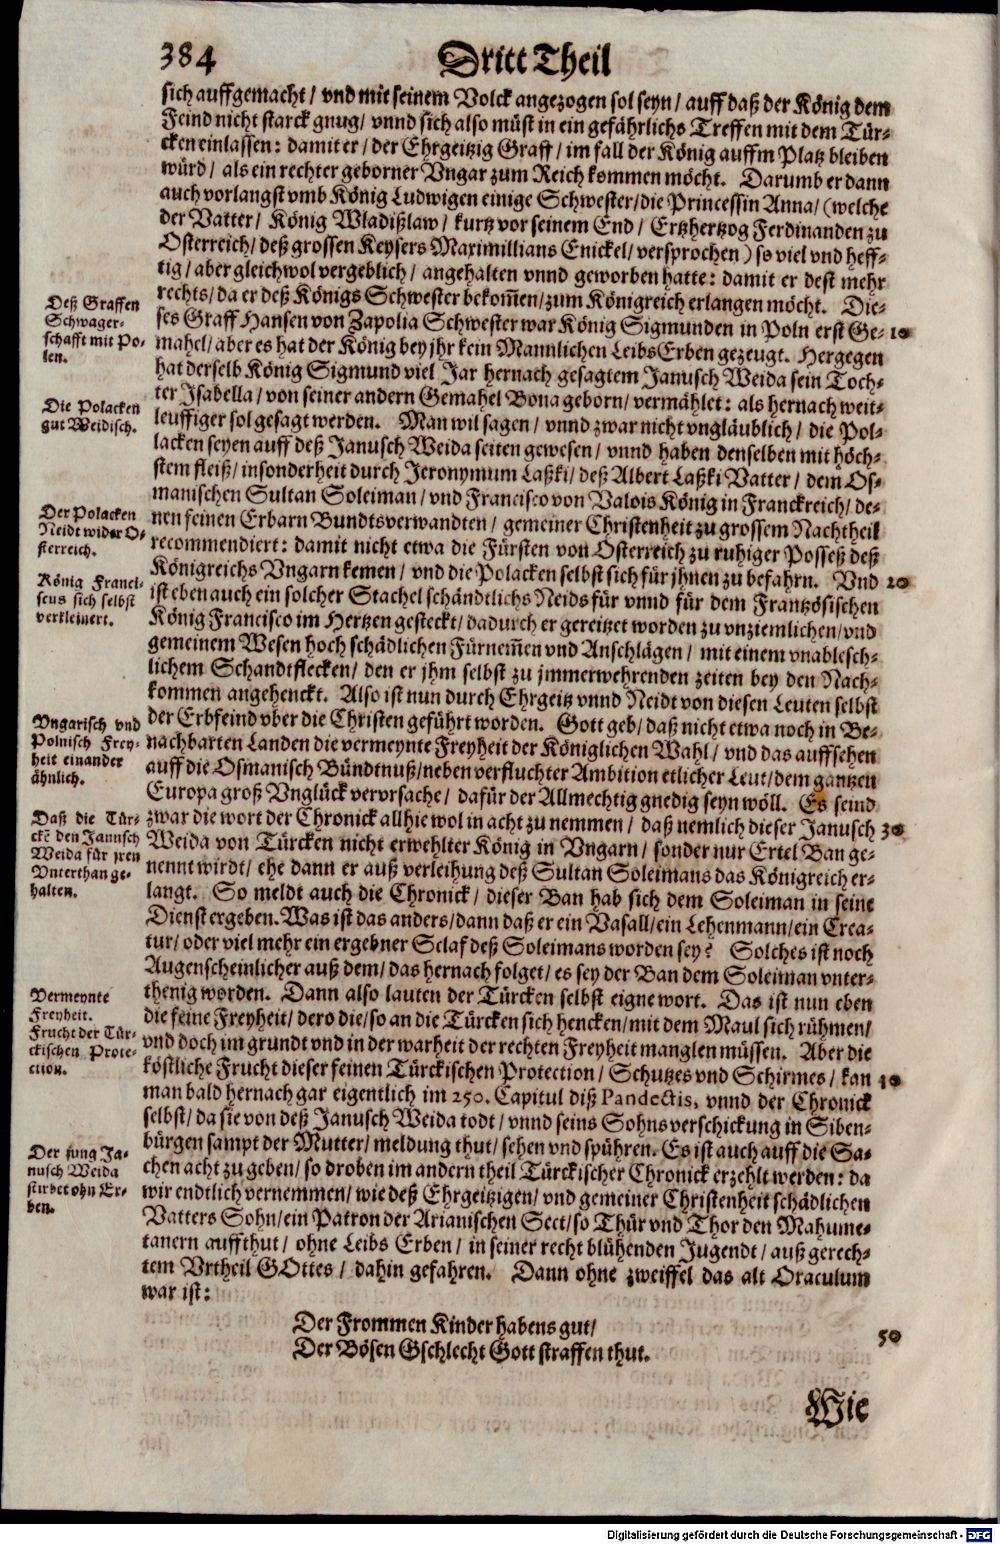 384
Dritt Theil
sich auffgemacht / vnd mit seinem Volck angezogen sol seyn / auff daß der König dem
Feind nicht starck gnug / vnnd sich also müst in ein gefährlichs Treffen mit dem Tür-
cken einlassen: damit er / der Ehrgeitzig Graff / im fall der König auffm Platz bleiben
würd / als ein rechter geborner Vngar zum Reich kommen möcht. Darumb er dann
auch vorlangst vmb König Ludwigen einige Schwester / die Princessin Anna / (welche
der Vatter / König Wladißlaw / kurtz vor seinem End / Ertzhertzog Ferdinanden zu
Osterreich / deß grossen Keysers Maximillians Enickel / versprochen) so viel vnd heff-
tig / aber gleichwol vergeblich / angehalten vnnd geworben hatte: damit er dest mehr
rechts / da er deß Königs Schwester bekom̃en / zum Königreich erlangen möcht. Die-
ses Graff Hansen von Zapolia Schwester war König Sigmunden in Poln erst Ge-
mahel / aber es hat der König bey jhr kein Mannlichen Leibs Erben gezeugt. Hergegen
hat derselb König Sigmund viel Jar hernach gesagtem Janusch Weida sein Toch-
ter Isabella / von seiner andern Gemahel Bona geborn / vermählet: als hernach weit-
leuffiger sol gesagt werden. Man wil sagen / vnnd zwar nicht vngläublich / die Pol-
lacken seyen auff deß Janusch Weida seiten gewesen / vnnd haben denselben mit höch-
stem fleiß / insonderheit durch Jeronymum Laßki / deß Albert Laßki Vatter / dem Os-
manischen Sultan Soleiman / vnd Francisco von Valois König in Franckreich / de-
nen seinen Erbarn Bundtsverwandten / gemeiner Christenheit zu grossem Nachtheil
recommendiert: damit nicht etwa die Fürsten von Osterreich zu ruhiger Posseß deß
Königreichs Vngarn kemen / vnd die Polacken selbst sich für jhnen zu befahrn. Vnd
ist eben auch ein solcher Stachel schändtlichs Neids für vnnd für dem Frantzösischen
König Francisco im Hertzen gesteckt / dadurch er gereitzet worden zu vnziemlichen / vnd
gemeinem Wesen hoch schädlichen Fürnem̃en vnd Anschlägen / mit einem vnablesch-
lichem Schandtflecken / den er jhm selbst zu jmmerwehrenden zeiten bey den Nach-
kommen angehenckt. Also ist nun durch Ehrgeitz vnnd Neidt von diesen Leuten selbst
der Erbfeind vber die Christen geführt worden. Gott geb / daß nicht etwa noch in Be-
nachbarten Landen die vermeynte Freyheit der Königlichen Wahl / vnd das auffsehen
auff die Osmanisch Bündtnuß / neben verfluchter Ambition etlicher Leut / dem gantzen
Europa groß Vnglück vervrsache / dafür der Allmechtig gnedig seyn wöll. Es seind
zwar die wort der Chronick allhie wol in acht zu nemmen / daß nemlich dieser Janusch
Weida von Türcken nicht erwehlter König in Vngarn / sonder nur Ertel Ban ge-
nennt wirdt / ehe dann er auß verleihung deß Sultan Soleimans das Königreich er-
langt. So meldt auch die Chronick / dieser Ban hab sich dem Soleiman in seine
Dienst ergeben. Was ist das anders / dann daß er ein Vasall / ein Lehenmann / ein Crea-
tur / oder viel mehr ein ergebner Sclaf deß Soleimans worden sey? Solches ist noch
Augenscheinlicher auß dem / das hernach folget / es sey der Ban dem Soleiman vnter-
thenig worden. Dann also lauten der Türcken selbst eigne wort. Das ist nun eben
die feine Freyheit / dero die / so an die Türcken sich hencken / mit dem Maul sich rühmen /
vnd doch im grundt vnd in der warheit der rechten Freyheit manglen müssen. Aber die
köstliche Frucht dieser feinen Türckischen Protection / Schutzes vnd Schirmes / kan
man bald hernach gar eigentlich im 250. Capitul diß Pandectis, vnnd der Chronick
selbst / da sie von deß Janusch Weida todt / vnnd seins Sohns verschickung in Siben-
bürgen sampt der Mutter / meldung thut / sehen vnd spühren. Es ist auch auff die Sa-
chen acht zu geben / so droben im andern theil Türckischer Chronick erzehlt werden: da
wir endtlich vernemmen / wie deß Ehrgeitzigen / vnd gemeiner Christenheit schädlichen
Vatters Sohn / ein Patron der Arianischen Sect / so Thür vnd Thor den Mahume-
tanern auffthut / ohne Leibs Erben / in seiner recht blühenden Jugendt / auß gerech-
tem Vrtheil GOttes / dahin gefahren. Dann ohne zweiffel das alt Oraculum
war ist:
Der Frommen Kinder habens gut /
Der Bösen Gschlecht Gott straffen thut.
Wie
Deß Graffen
Schwager-
schafft mit Po-
len.
Die Polacken
gut Weidisch.
Der Polacken
Neidt wider O-
sterreich.
König Franci-
scus sich selbst
verkleinert.
Vngarisch vnd
Polnisch Frey-
heit einander
ähnlich.
Daß die Tür-
ckẽ den Jannsch
Weida für jren
Vnterthan ge-
halten.
Vermeynte
Freyheit.
Frucht der Tür-
ckischen Prote-
ction.
Der jung Ja-
nusch Weida
stirbet ohn Er-
ben.
10
20
30
40
50
Digitalisierung gefördert durch die Deutsche Forschungsgemeinschaft - DFG